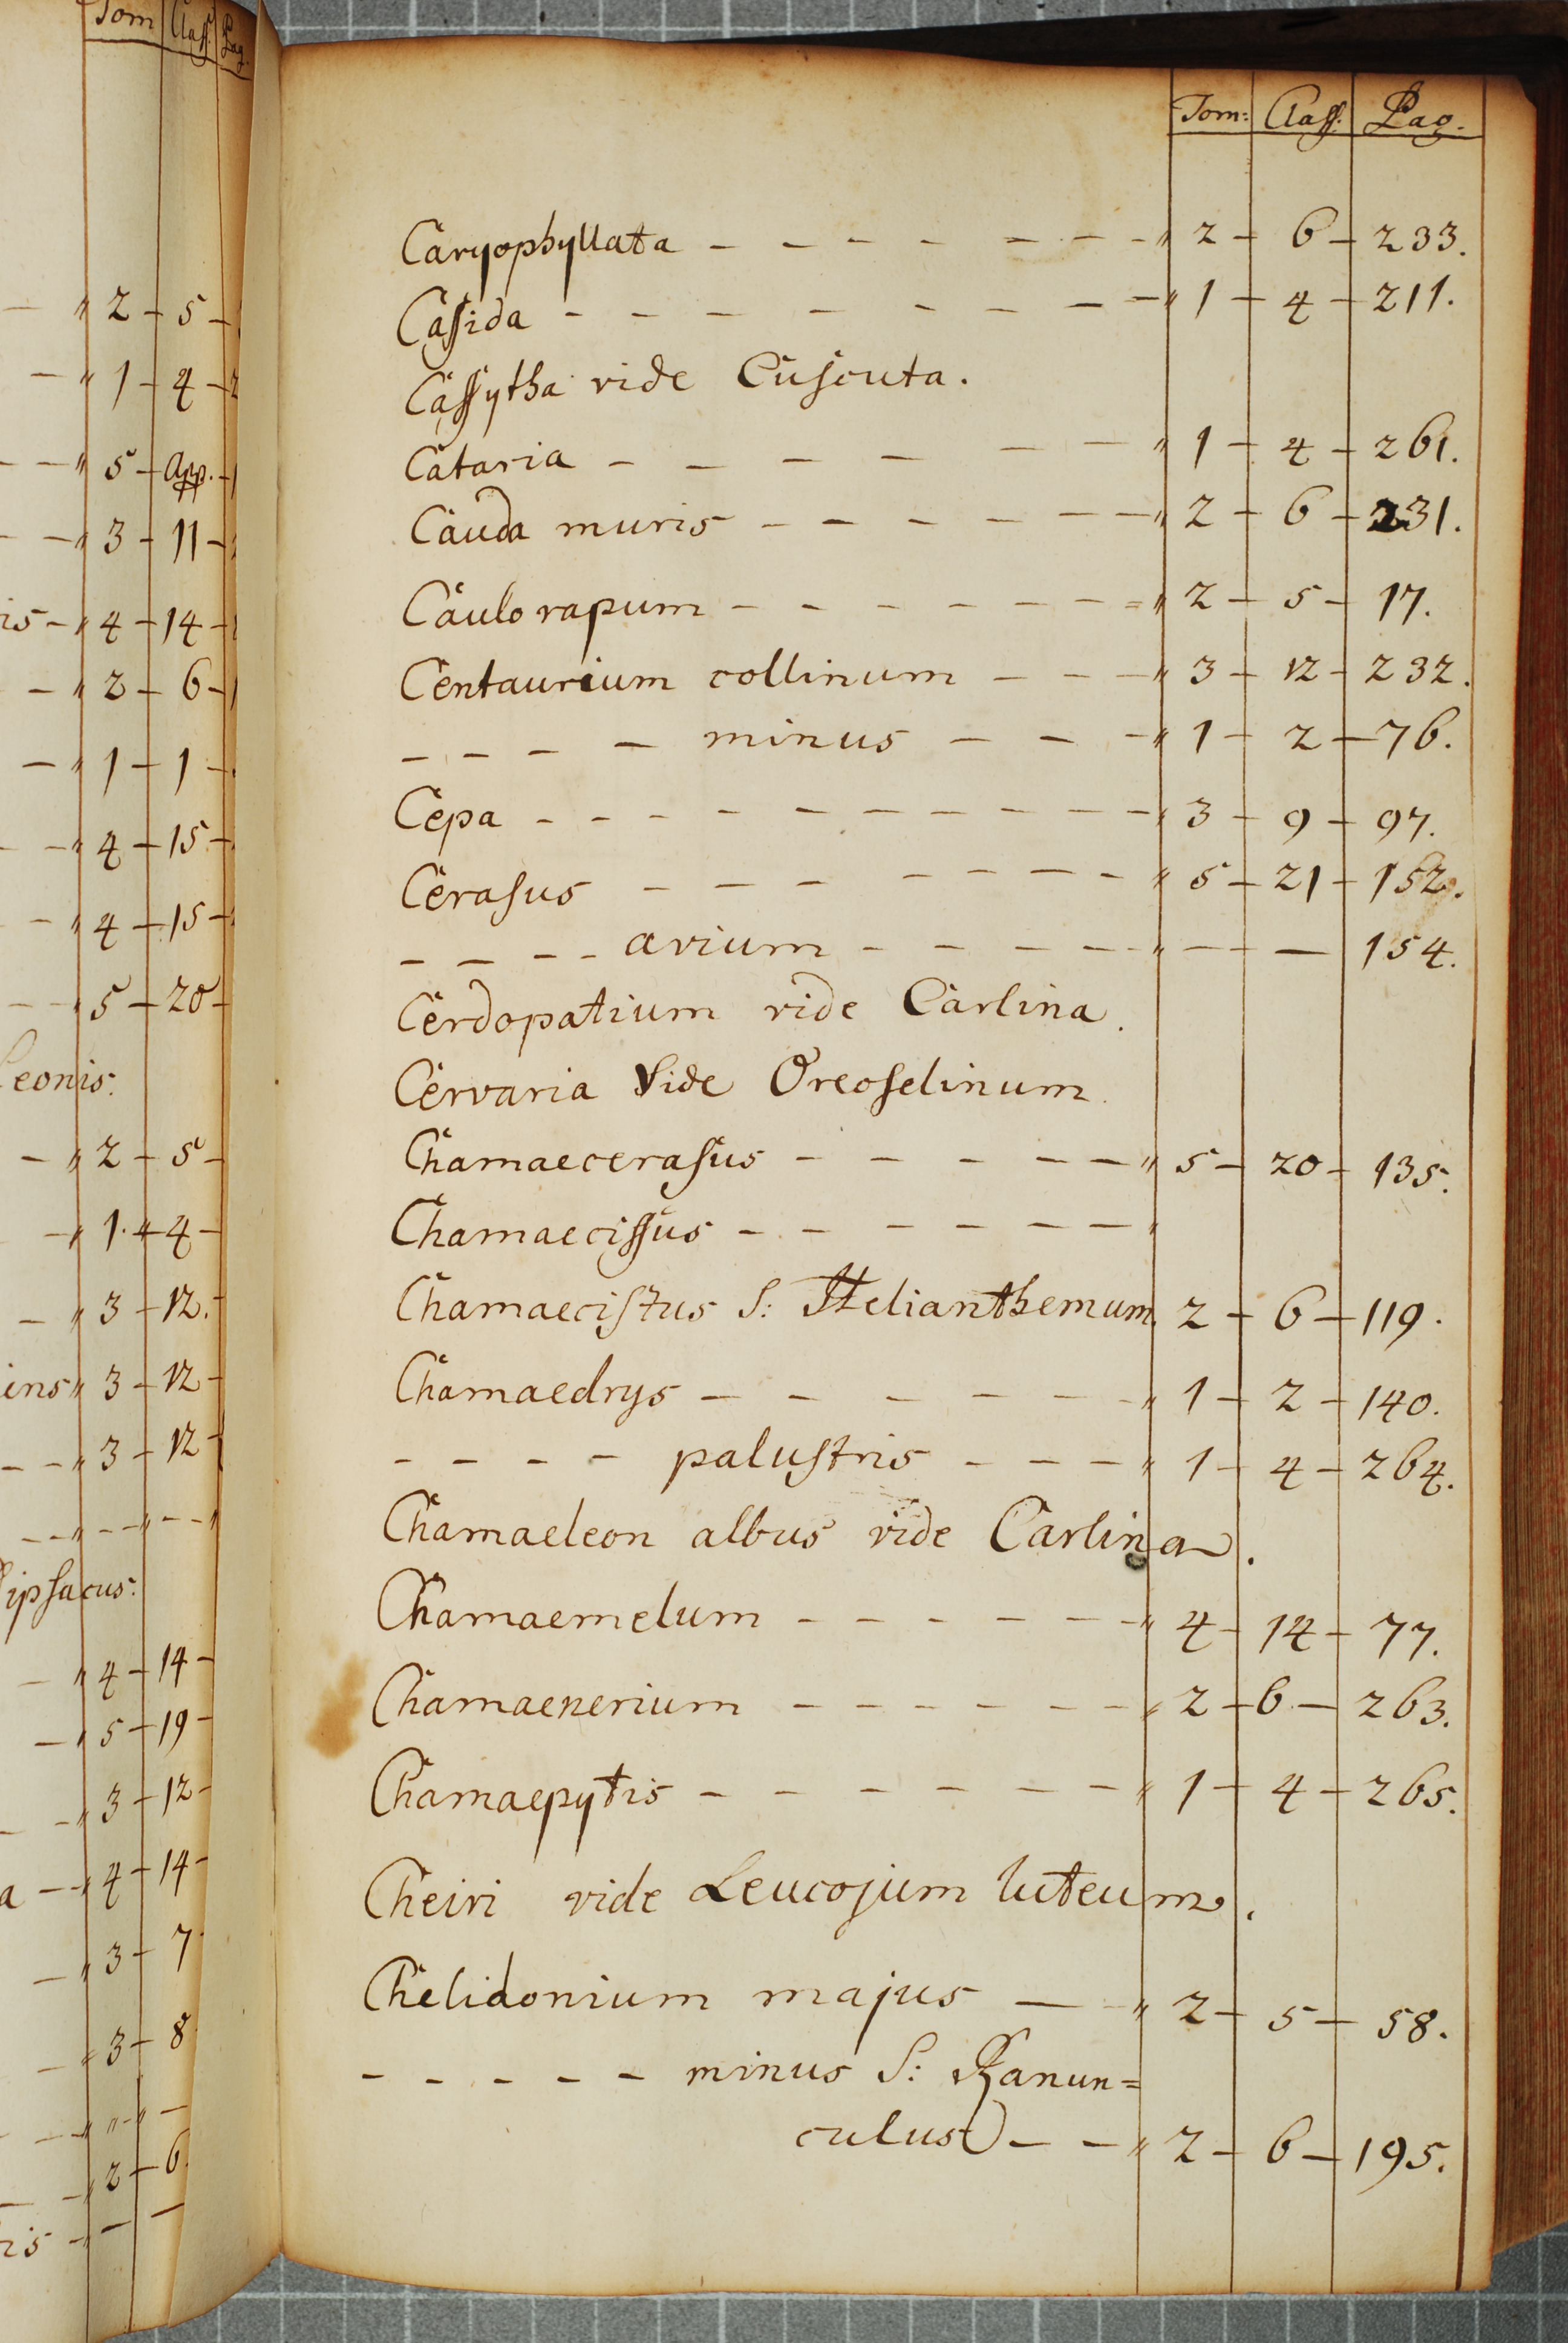 Tom Class. Pag.
2 - 5 -
1 - 4 -
5 - App. -
3 - 11 -
is - 4 - 14 -
2 - 6 -
1 - 1 -
4 - 15 -
4 - 15 -
5 - 20 -
Leonis.
2 - 5 -
1. - 4 -
3 - 12.
ins 3 - 12 -
3 - 12 -
Dipsacus.
4 - 14 -
5 - 19 -
3 - 12 -
a - 4 - 14 -
3 - 7
3 - 8
2 - 6.
ris -
Tom: Claſſ: Pag.
Caryophyllata - - - - - - - " 2 - 6 - 233.
Caſsida - - - - - - - - " 1 - 4 - 211.
Caſsytha vide Cuſcuta.
Cataria - - - - - - - " 1 - 4 - 261.
Cauda muris - - - - - - " 2 - 6 - 231.
Caulo rapum - - - - - - = " 2 - 5 - 17.
Centaurium collinum - - - " 3 - 12 - 232.
- - - - minus - - - " 1 - 2 - 76.
Cepa - - - - - - - - - - " 3 - 9 - 97.
Ceraſus - - - - - - - " 5 - 21 - 152.
- - - - avium - - - - - " - - 154.
Cerdopatium vide Carlina.
Cervaria Vide Oreoſelinum.
Chamaeceraſus - - - - - " 5 - 20 - 135.
Chamaeciſsus - - - - - - "
Chamaeciſtus S: Helianthemum 2 - 6 - 119.
Chamaedrys - - - - - - " 1 - 2 - 140.
- - - - paluſtris - - - " 1 - 4 - 264.
Chamaeleon albus vide Carlina.
Chamaemelum - - - - - - " 4 - 14 - 77.
Chamaenerium - - - - - - " 2 - 6 - 263.
Chamaepytis - - - - - - - " 1 - 4 - 265.
Cheiri vide Leucojum luteum.
Chelidonium majus - - " 2 - 5 - 58.
- - - - - minus S: Ranun=
culus) - - " 2 - 6 - 195.